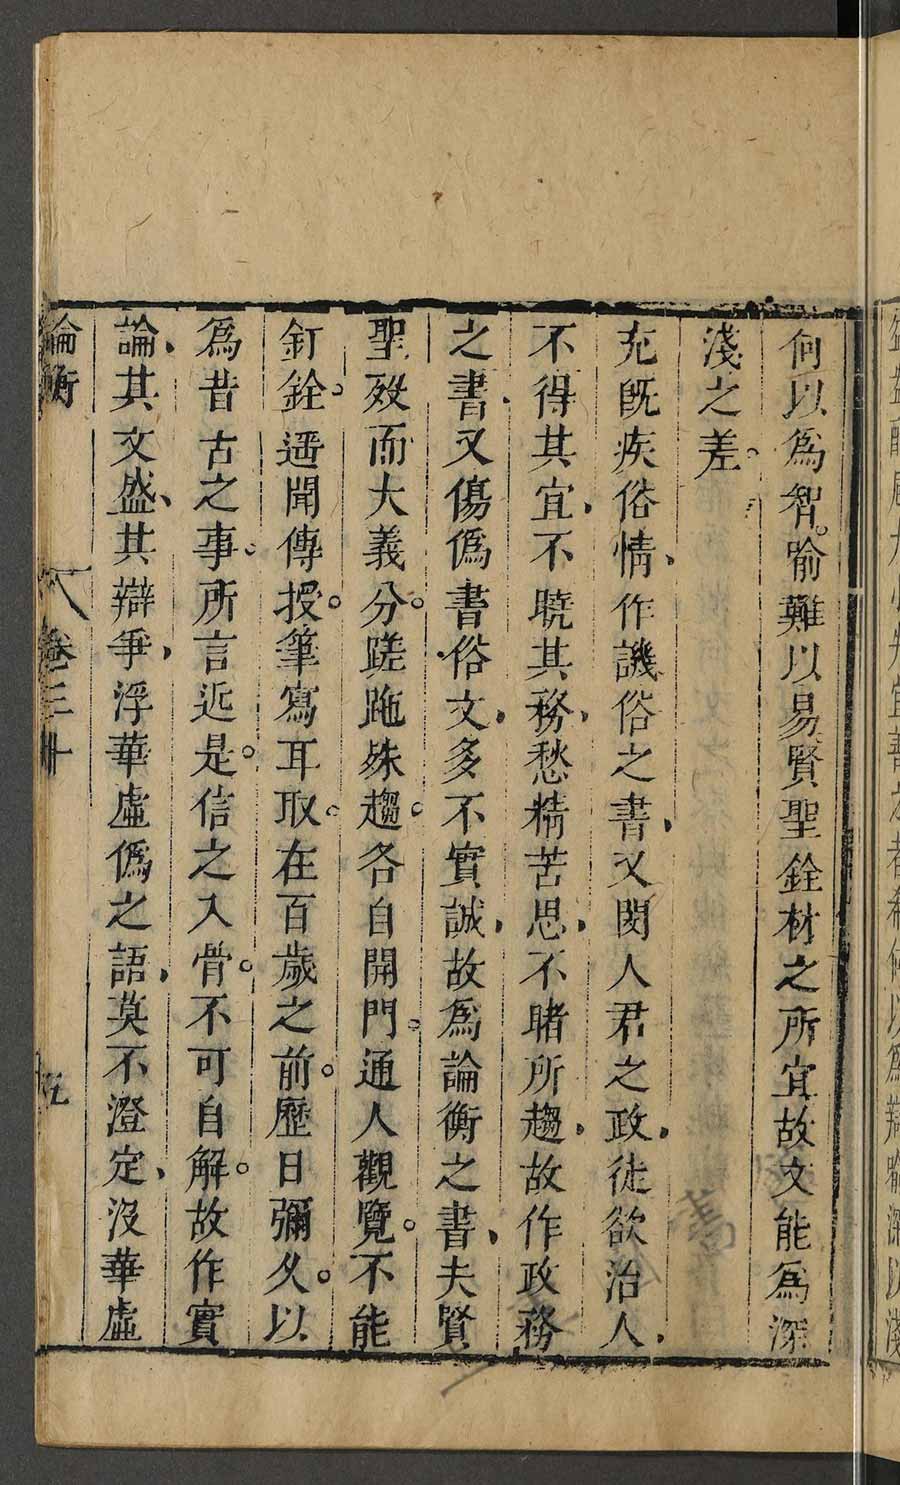 何以爲智喻難以易賢聖銓材之所宜故文能爲深
淺之差
充既疾俗情作譏俗之書又閔人君之政徒欲治人
不得其宜不曉其務愁精苦思不睹所趨故作政務
之書又傷僞書俗文多不實誠故爲論衡之書夫賢
聖歿而大義分蹉跎殊趨各自開門通人觀覽不能
釘銓遥聞傳授筆寫耳取在百歲之前歷日彌久以
爲昔古之事所言近是信之入骨不可自解故作實
論其文盛其辯爭浮華虛僞之語莫不澄定沒華虛
論衡 卷三十 五